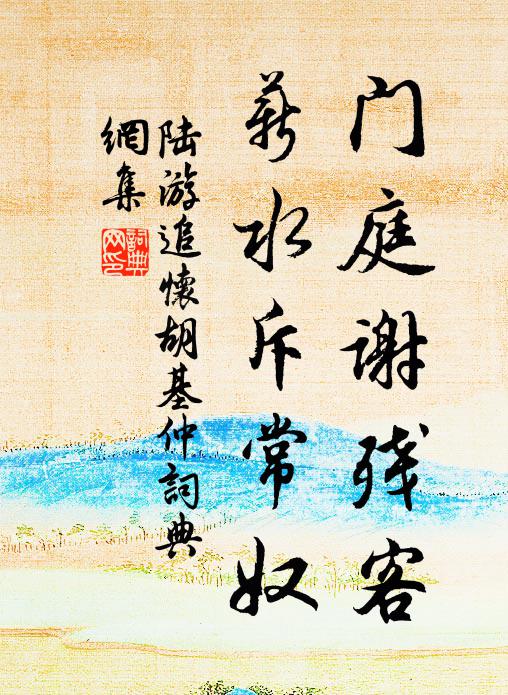 门庭谢残客
薪水斥常奴
陆游追怀胡基仲詞典
網集
詞典
网印